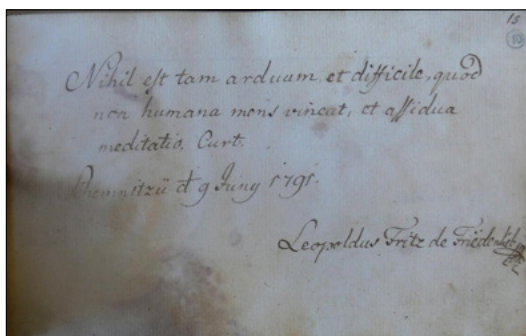 15
Nihil est tam arduum et difficile, quod
non humana mens vincat, et assidua
meditatio. Curt.
Schemnitzii d 9 Juny 1791.
Leopoldus Fritz de